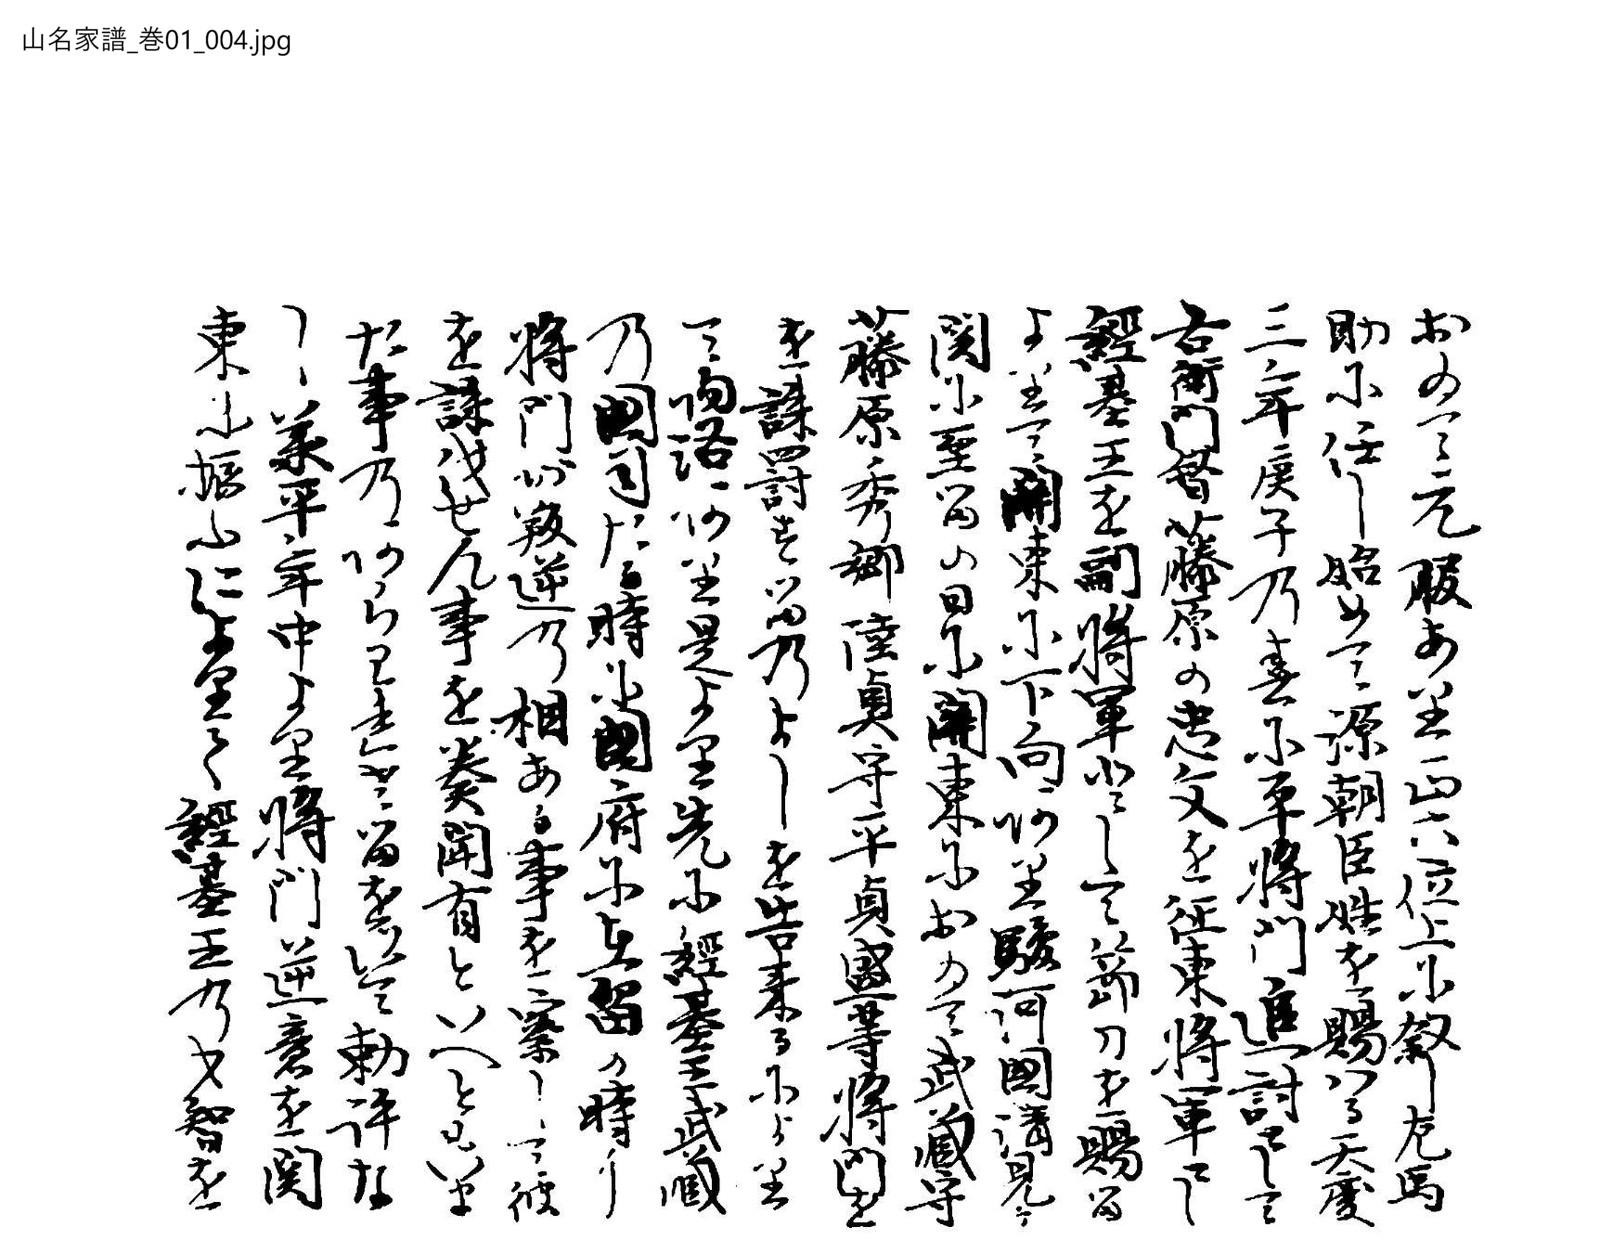 山名家譜_巻01_004.jpg
おゐて元服あり正六位上に叙し左馬
助に任し始めて源朝臣姓を賜はる天慶
三年庚子乃春平将門追討として
右衛門督藤原の忠文を征東将軍とし
經基王を副将軍として節刀を賜
よりて関東に下向あり駿河國清見か
関に至るの日に関東におゐて武藏守
藤原秀郷陸奥守平貞盛等将門を
を誅討するのよしを告来るにより
て帰洛あり是より先に經基王武藏
乃國司たる時に國府に在留の時
将門か叛逆乃相ある事を察して彼
を誅伐せん事を奏聞有といへともいま
た事乃あらはれさるを以て勅許な
し 承平年中より将門逆意を関
東に振ふによりて經基王乃才智を